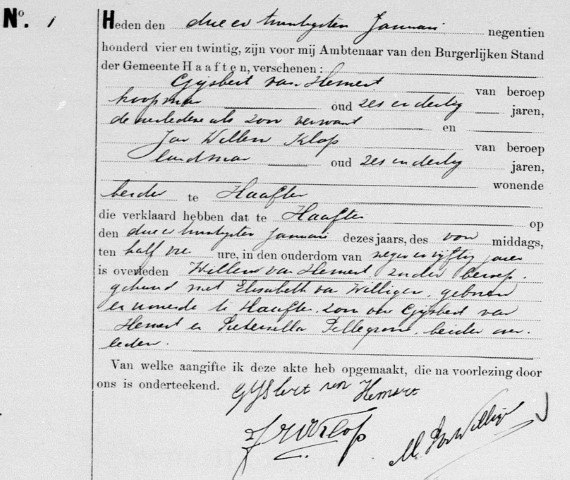 No. 1
Heden den drie en twintigsten Januari negentien
honderd vier en twintig, zijn voor mij Ambtenaar van den Burgerlijken Stand
der Gemeente Haaften, verschenen:
Gijsbert van Hemert van beroep
koopman oud zes en dertig jaren,
de overledene als zoon verwant en
Jan Willem Klop van beroep
landman oud zes en dertig jaren,
wonende
beiden te Haaften
die verklaard hebben dat te Haaften op
den drie en twintigsten Januari dezes jaars, des voor middags,
ten half vier ure, in den ouderdom van negen en vijftig jaren
is overleden Willem van Hemert zonder beroep,
gehuwd met Elisabeth van Willigen, geboren
en wonende te Haaften, zoon van Gijsbert van
Hemert en Pieternella Pellegrom, beiden over
leden.
Van welke aangifte ik deze akte heb opgemaakt, die na voorlezing door
ons is onderteekend. Gijsbert van Hemert
J W Klop